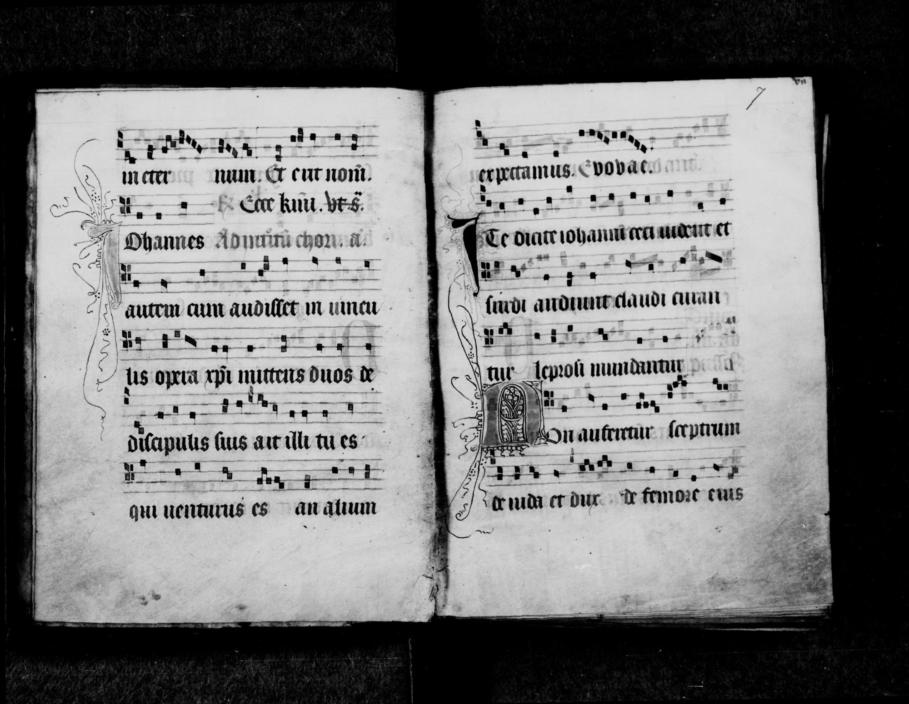 in eter num. Et erit nom̄.
℟. Ecce
Ohannes
autem cum audisset in uincu
lis opera xp̄i mittens duos de
discipulis suis ait illi tu es
qui uenturus es an alium
7
expectamus. Evovae.
Te dicite iohanni ceci uident et
surdi audiunt claudi curan
tur leprosi mundantur
Non auferetur sceptrum
de iuda et dux de femore eius